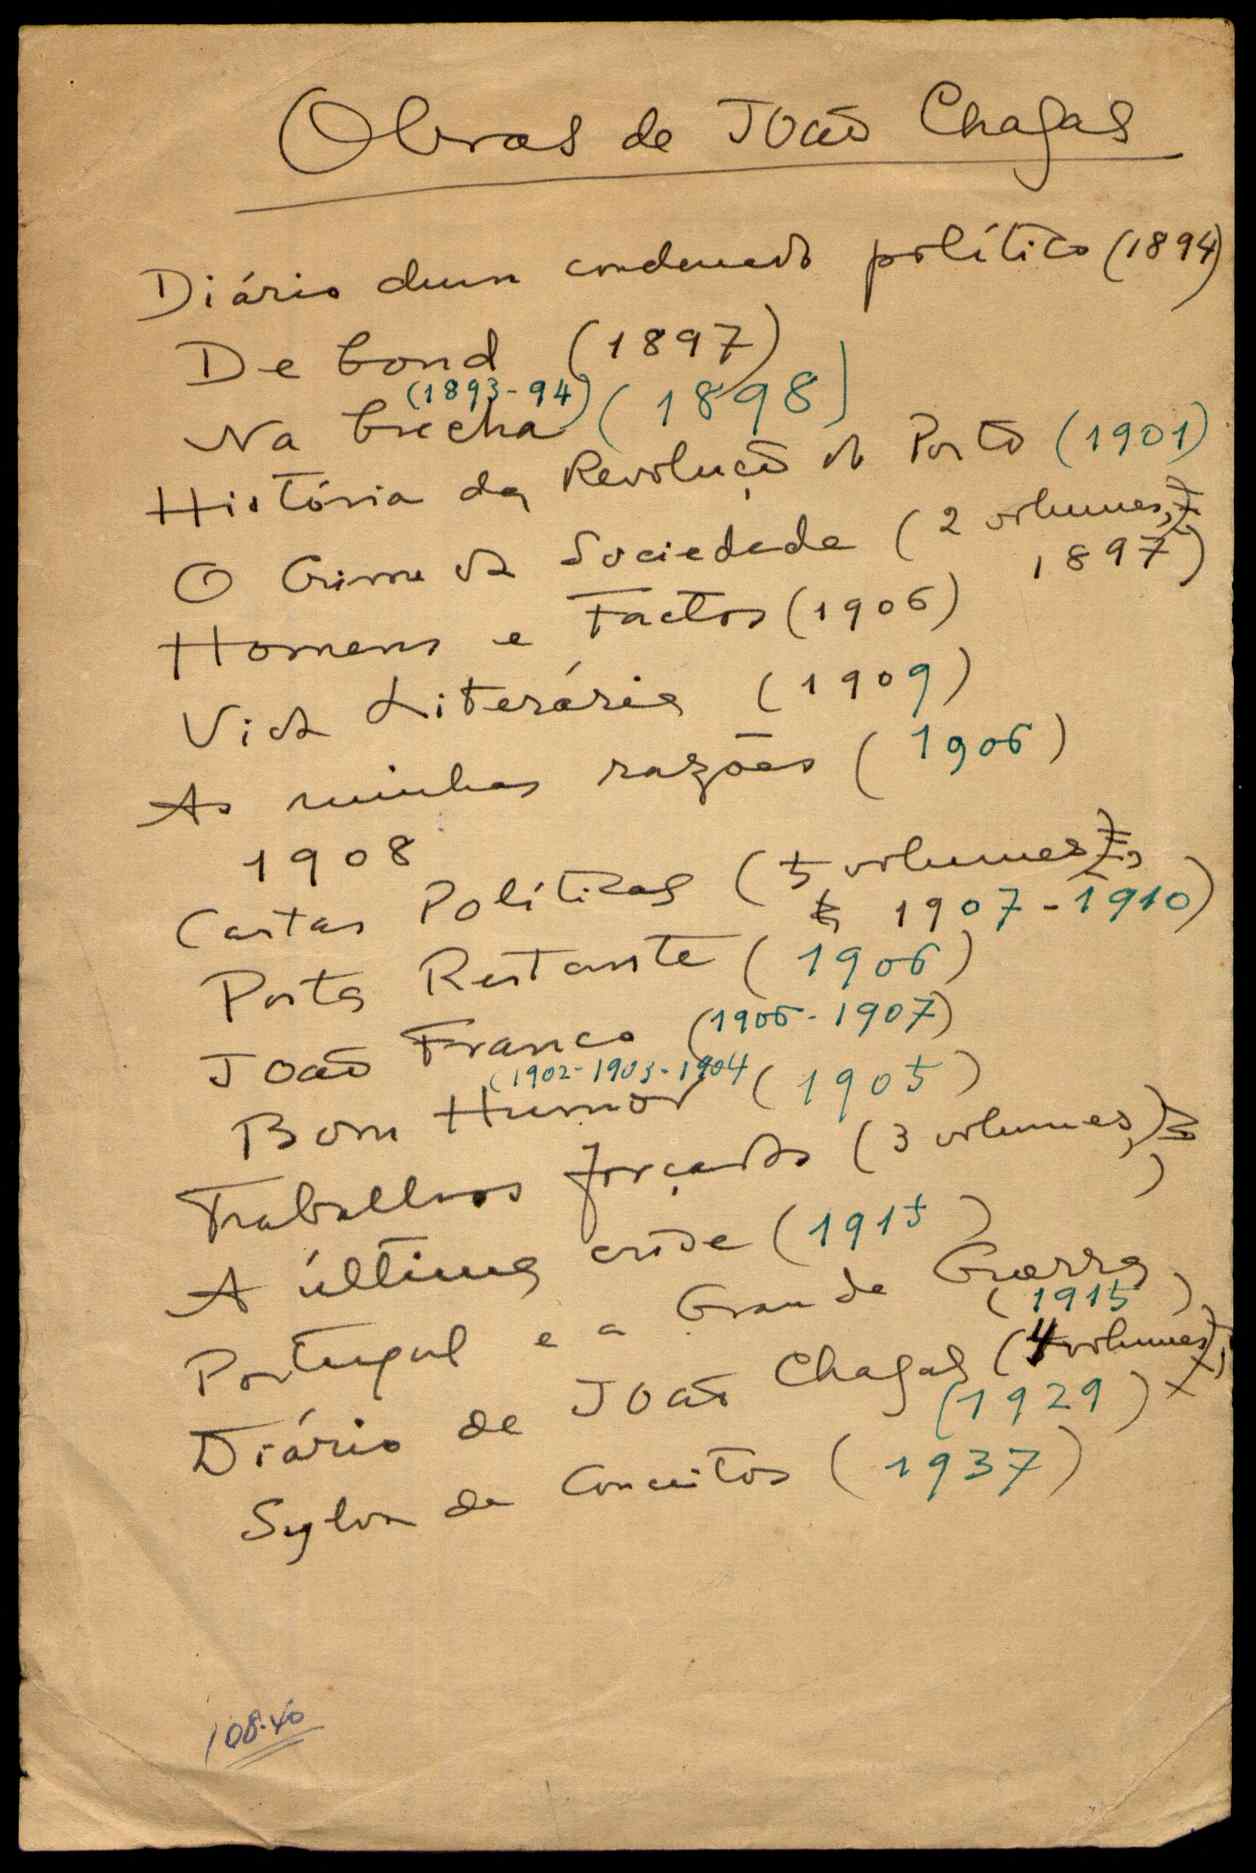 Obras de João Chagas
Diário dum condenado político (1894)
De bond (1897)
(1893-94)
Na brecha (1898)
História da Revolução do Porto (1901)
O Crime da Sociedade (2 volumes,
1897)
Homens e Factos (1906)
Vida Literária (1909)
As minhas razões (1906)
1908
Cartas Políticas (5 volumes,
1907-1910)
Posta Restante (1906)
João Franco (1906-1907)
(1902-1903-1904
Bom Humor (1905)
Trabalhos forçados (3 volumes,
)
A última crise (1915)
Portugal e a Grande Guerra
(1915)
Diário de João Chagas (4 volumes),
(1929)
Sylva de Conceitos (1937)
108.40